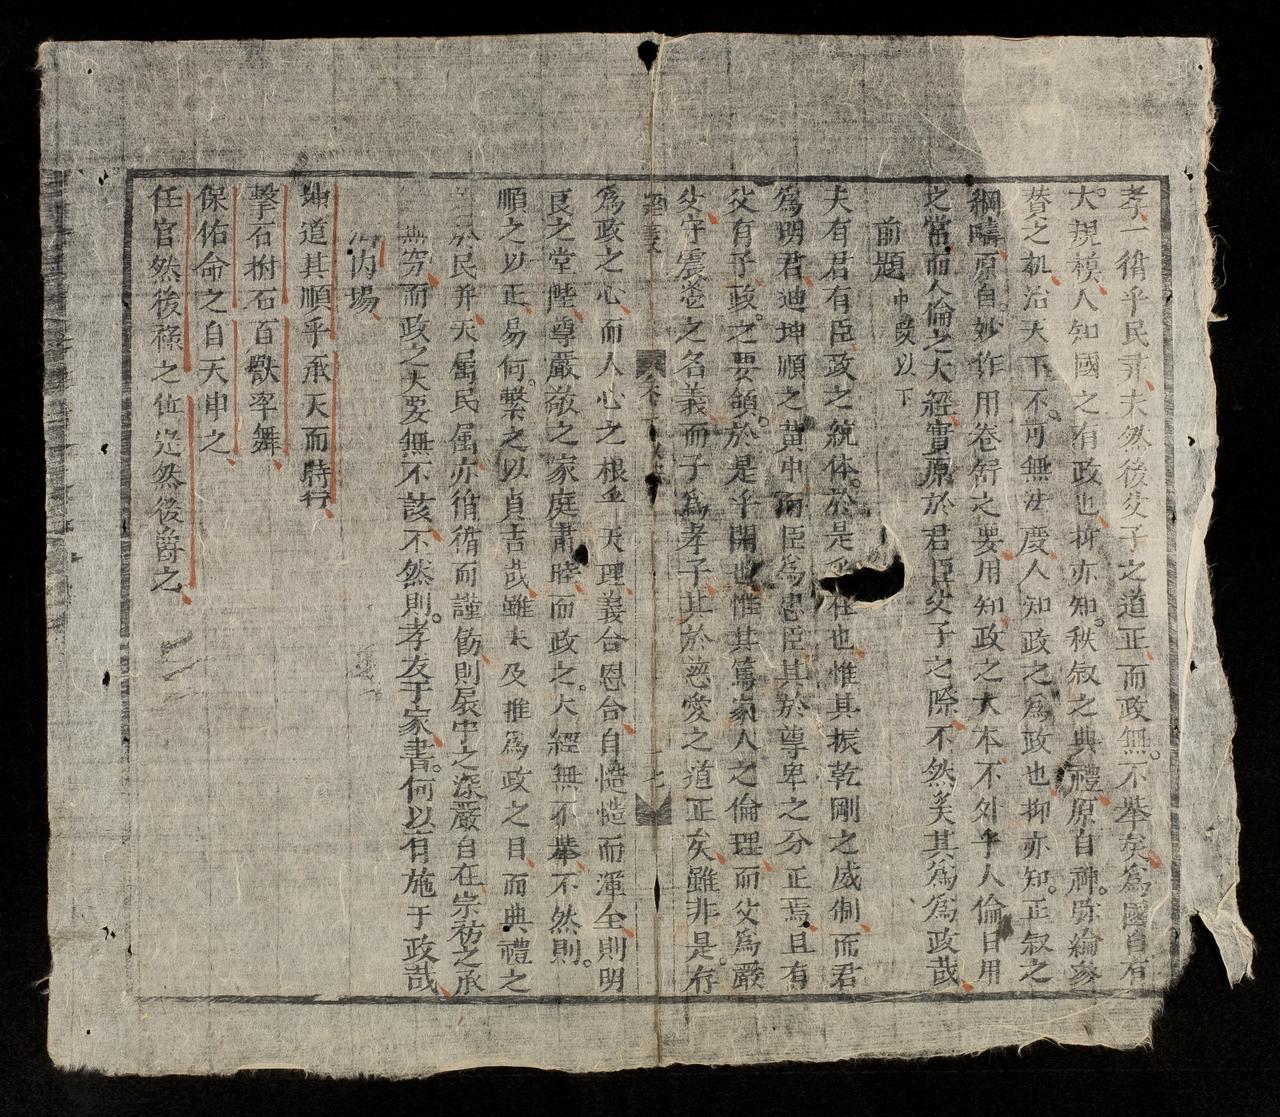 孝一脩乎民彛夫然後父子之道正而政無不舉矣為國自有
大規模人知國之有政也抑亦知秩叙之典禮原自神弥綸参
賛之机治天下不可無法度人知政之為政也抑亦知正叙之
綱疇原自妙作用卷舒之要用知政之大本不外乎人倫日用
之常而人倫之大經實原於君臣父子之際不然奚其為為政哉
前題中股以下
夫有君有臣政之統体於是乎在也惟其振乾剛之威制而君
為明君迪坤順之黄中而臣為忠臣其於尊卑之分正焉且有
父有子政之要領於是乎関也惟其篤家人之倫理而父為嚴
父守震蒼之名義而子為孝子其於慈愛之道正矣雖非是存
七
為政之心而人心之根 天理義合恩合自慥慥而渾全則明
良之堂陛尊嚴敬之家庭肅睦而政之大經無不舉不然則
順之以正易何繫之以貞吉哉雖未及推為政之目而典禮之
於民彛天属民属亦循循而謹飭則扆中之深嚴自在宗祊之承
無穷而政之大要無不該不然則孝友于家書何以有施于政哉
内場
坤道其順乎承天而時行
擊石拊石百獸率舞
保佑命之自天申之
任官然後祿之位定然後爵之